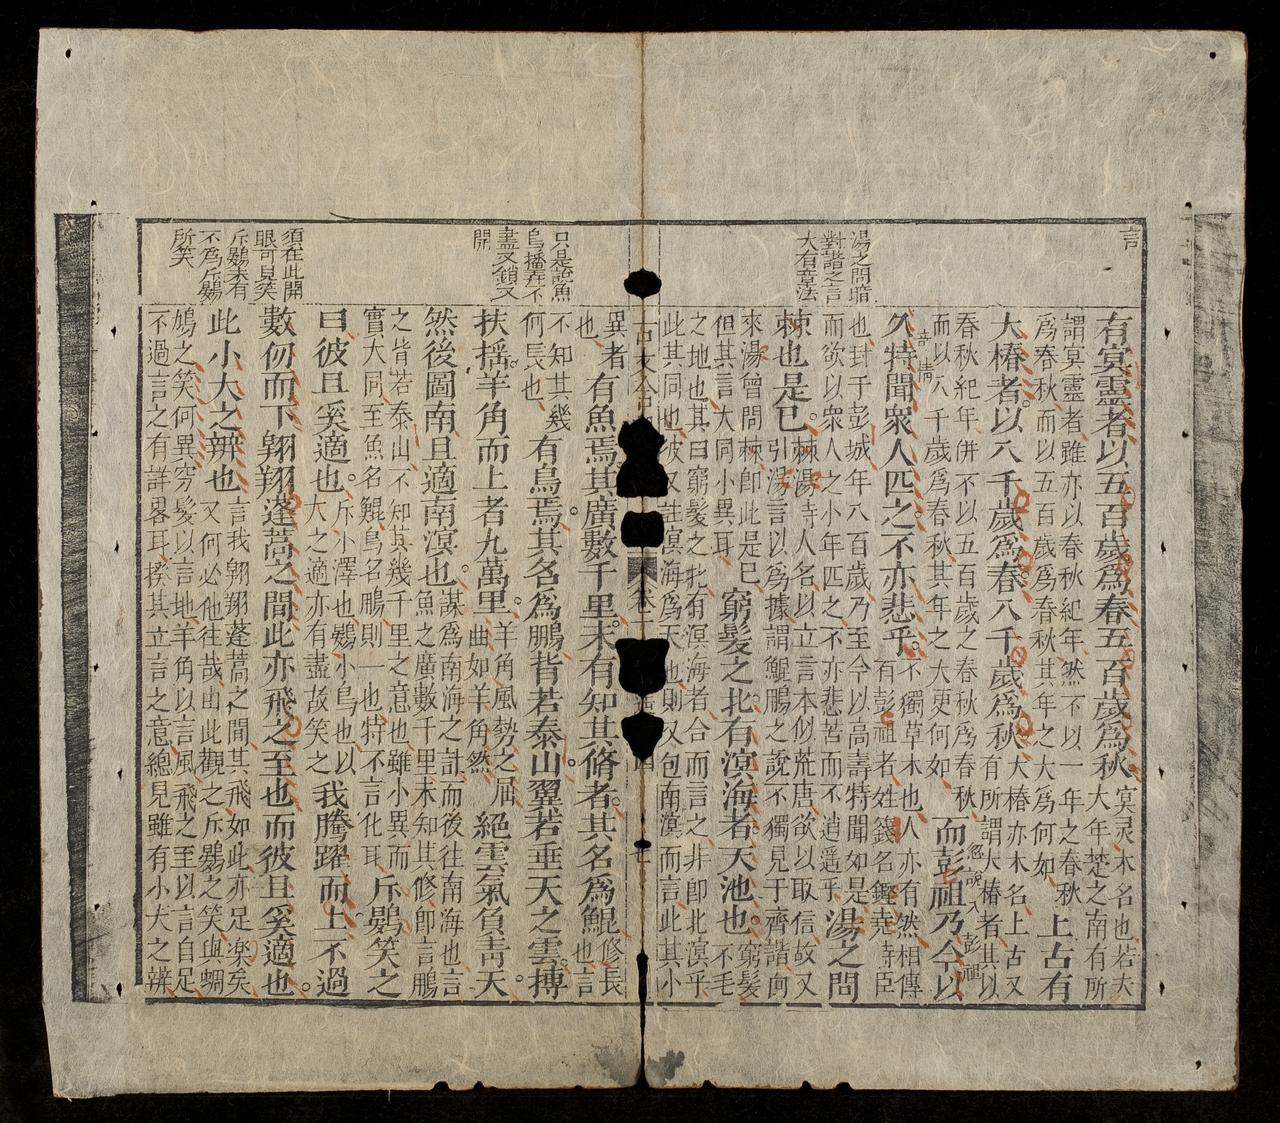 言
湯之問暗
對諧之言
大有章法
有冥靈者以五百歲爲春五百歲爲秋
冥灵木名也若夫
大年楚之南有所
謂冥靈者雖亦以春秋紀年然不以一年之春秋
爲春秋而以五百歲爲春秋其年之大爲何如
上古有
大椿者以八千歲爲春八千歲爲秋
大椿亦木名上古又
有所謂大椿者其以
春秋紀年併不以五百歲之春秋爲春秋
而以八千歲爲春秋其年之大更何如
而彭祖乃今以
忽說入彭祖
久特聞衆人匹之不亦悲乎
奇情
不獨草木也人亦有然相傳
有彭祖者姓籛名鏗堯時臣
也封于彭城年八百歲乃至今以高壽特聞如是
而欲以衆人之小年匹之不亦悲苦而不逍遥乎
湯之問
棘也是已
棘湯時人名以立言本似荒唐欲以取信故又
引湯言以爲據謂鯤鵬之說不獨見于齊諧向
來湯曾問棘卽此是已
但其言大同小異耳
窮髮之北有溟海者天池也
窮髮
不毛
之地也其曰窮髮之北有溟海者合而言之非卽北溟乎
此其同也彼又註溟海爲天池則又包南溟而言此其小
只是說魚
鳥播弄不
盡又鎖又
開
異者
也
有魚焉其廣數千里未有知其脩者其名爲鯤
修長
也言
不知其幾
何長也
有鳥焉其名爲鵬背若泰山翼若垂天之雲搏
扶搖羊角而上者九萬里
羊角風勢之屈
曲如羊角然
絕雲氣負靑天
然後圖南且適南溟也
謀爲南海之計而後往南海也言
魚之廣數千里未知其修卽言鵬
之背若泰山不知其幾千里之意也雖小異而
實大同至魚名鯤鳥名鵬則一也特不言化耳
斥鷃笑之
曰彼且奚適也
斥小澤也鷃小鳥也以
大之適亦有盡故笑之
我騰躍而上不過
數仞而下翱翔蓬蒿之間此亦飛之至也而彼且奚適也
須在此開
眼可見笑
斥鷃未有
不爲斥鷃
所笑
此小大之辨也
言我翱翔蓬蒿之間其飛如此亦足楽矣
又何必他往哉由此觀之斥鷃之笑與蜩
鳩之笑何異窮髮以言地羊角以言風飛之至以言自足
不過言之有詳畧耳揆其立言之意總見雖有小大之辨